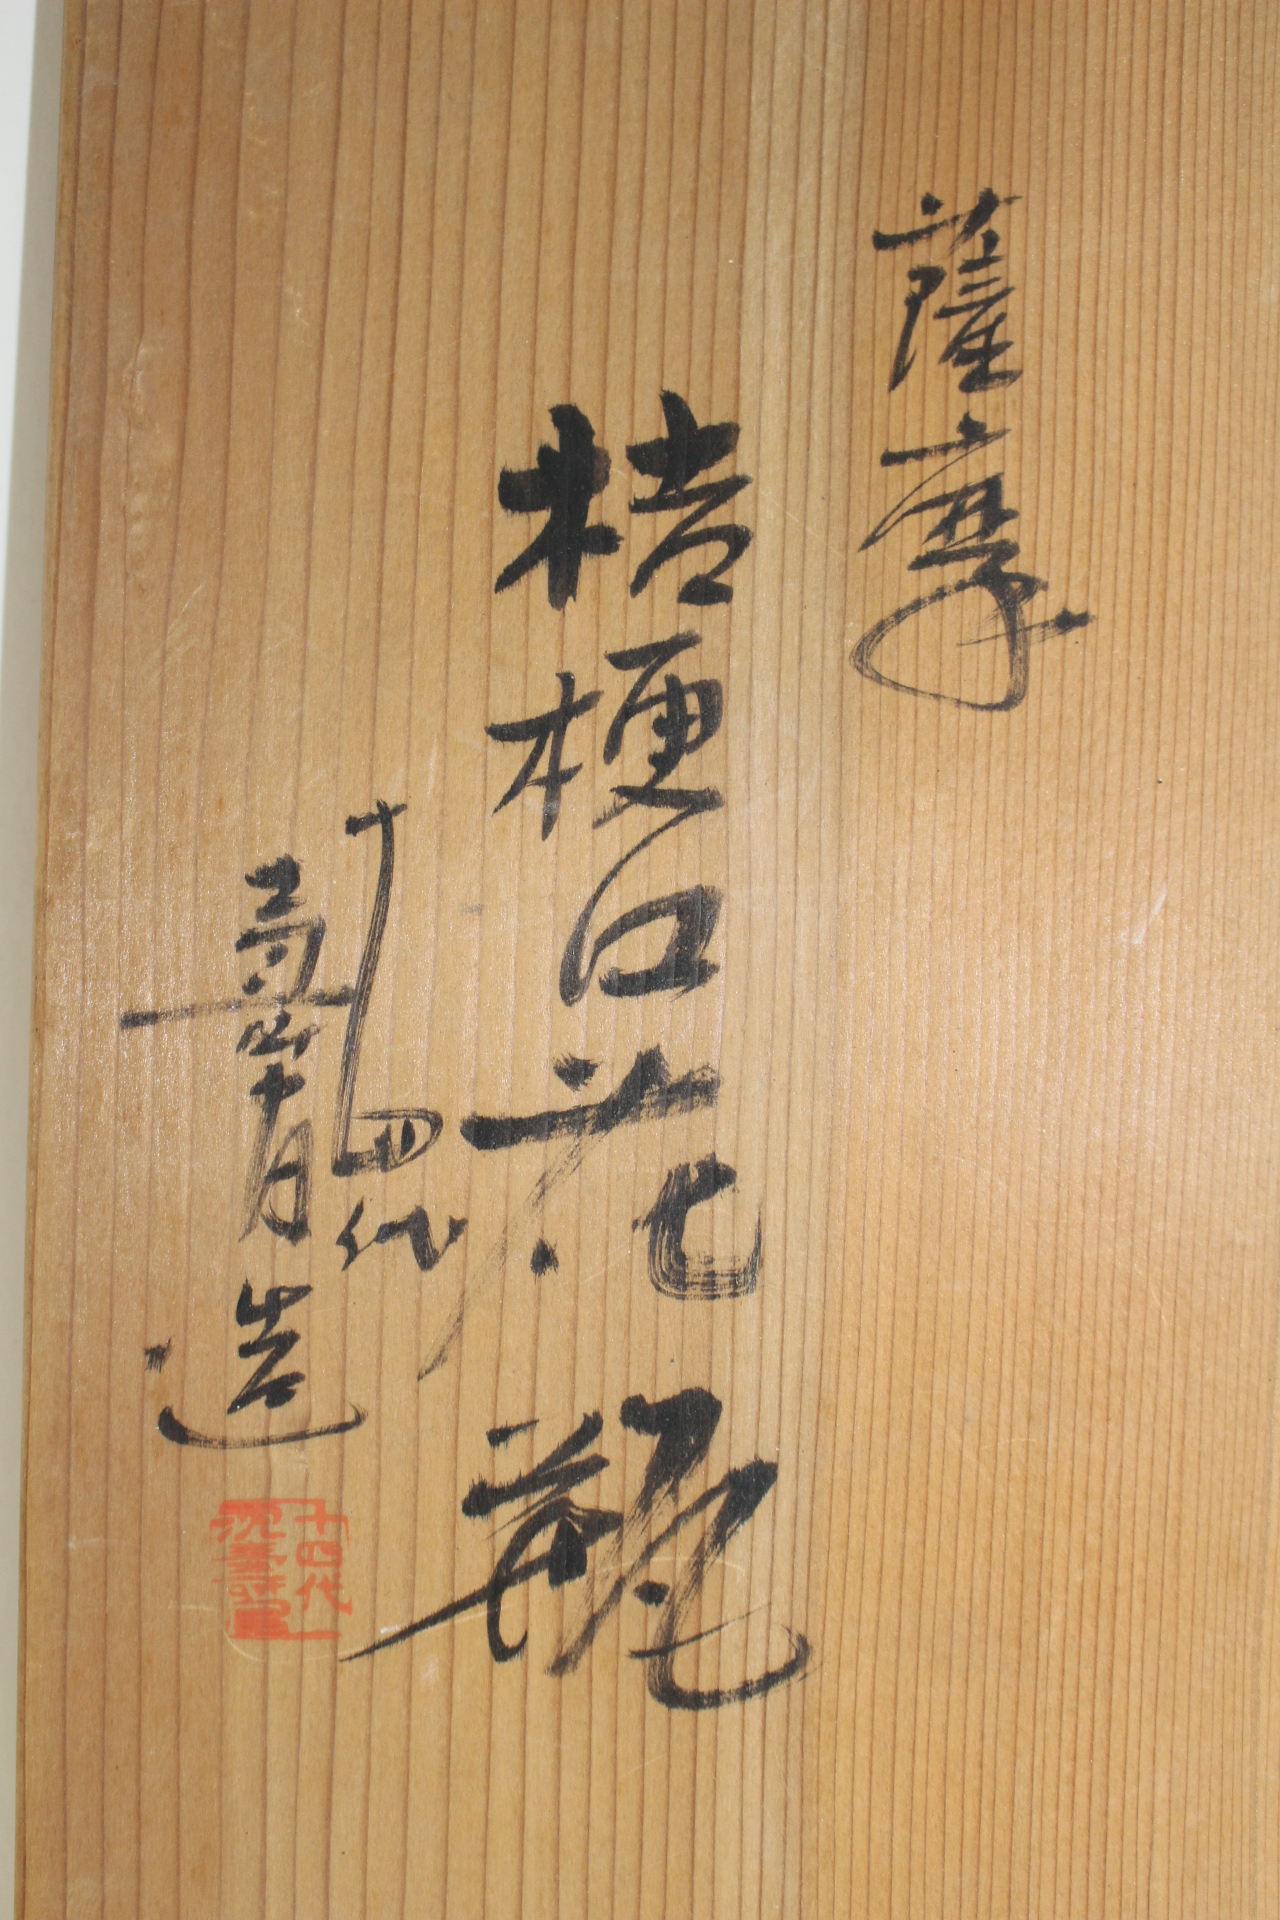 薩摩
桔梗口花瓶
十四代
寿官造
十四代
沈寿官